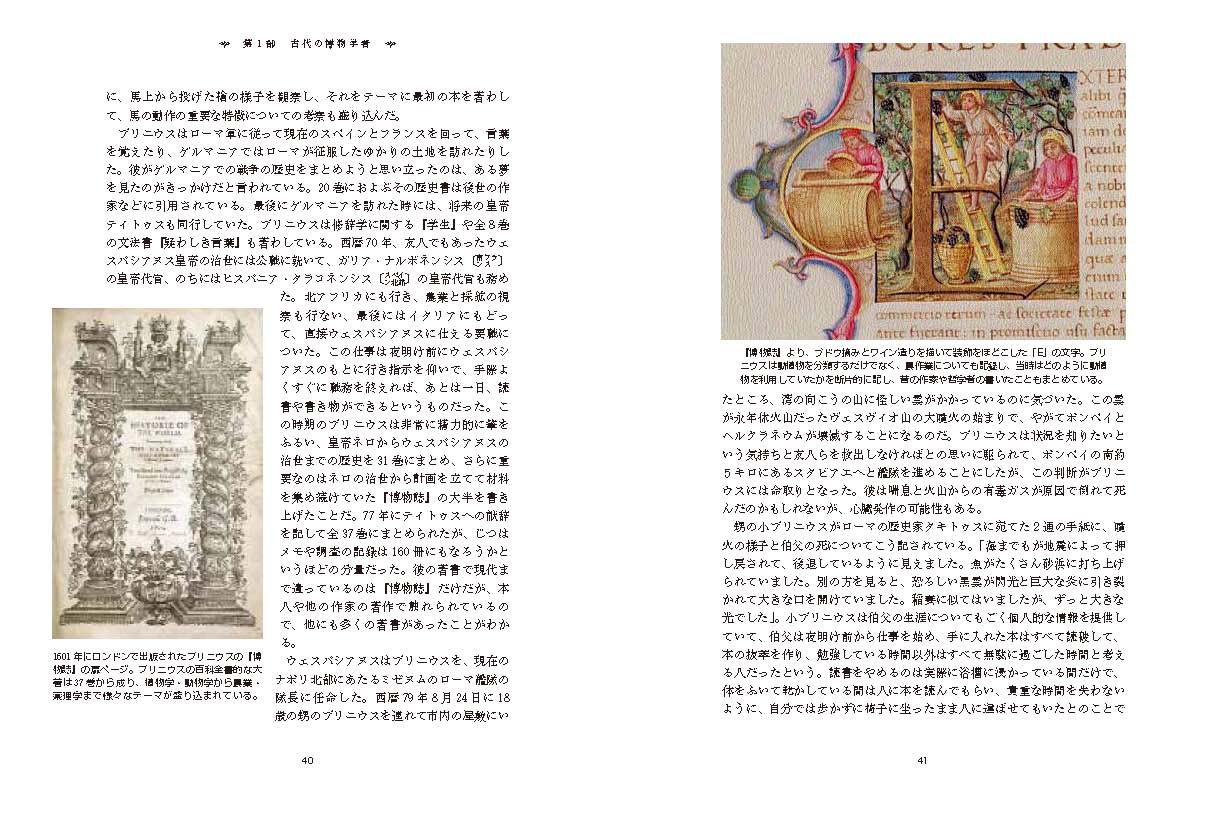 第1部 古代の博物学者
に、馬上から投げた槍の様子を観察し、それをテーマに最初の本を著わし
て、馬の動作の重要な特徴についての考察も盛り込んだ。
プリニウスはローマ軍に従って現在のスペインとフランスを回って、言葉
を覚えたり、ゲルマニアではローマが征服したゆかりの土地を訪れたりし
た。彼がゲルマニアでの戦争の歴史をまとめようと思い立ったのは、ある夢
を見たのがきっかけだと言われている。20巻におよぶその歴史書は後世の作
家などに引用されている。最後にゲルマニアを訪れた時には、将来の皇帝
ティトゥスも同行していた。プリニウスは修辞学に関する『学生』や全8巻
の文法書『疑わしき言葉』も著わしている。西暦70年、友人でもあったウェ
スパシアヌス皇帝の治世には公職に就いて、ガリア・ナルボネンシス〔南フランス〕
の皇帝代官、のちにはヒスパニア・タラコネンシス〔スペイン北部〕の皇帝代官も務め
た。北アフリカにも行き、農業と採鉱の視
察も行ない、最後にはイタリアにもどっ
て、直接ウェスパシアヌスに仕える要職に
ついた。この仕事は夜明け前にウェスパシ
アヌスのもとに行き指示を仰いで、手際よ
くすぐに職務を終えれば、あとは一日、読
書や書き物ができるというものだった。こ
の時期のプリニウスは非常に精力的に筆を
ふるい、皇帝ネロからウェスパシアヌスの
治世までの歴史を31巻にまとめ、さらに重
要なのはネロの治世から計画を立てて材料
を集め続けていた『博物誌』の大半を書き
上げたことだ。77年にティトゥスへの献辞
を記して全37巻にまとめられたが、じつは
メモや調査の記録は160冊にもなろうかと
いうほどの分量だった。彼の著書で現代ま
で遺っているのは『博物誌』だけだが、本
人や他の作家の著作で触れられているの
で、他にも多くの著書があったことがわか
る。
ウェスパシアヌスはプリニウスを、現在の
ナポリ北部にあたるミゼヌムのローマ艦隊の
隊長に任命した。西暦79年8月24日に18
歳の甥のプリニウスを連れて市内の屋敷にい
THE
HISTORIE OF
THE WORLD
1601年にロンドンで出版されたプリニウスの『博
物誌』の扉ページ。プリニウスの百科全書的な大
著は37巻から成り、植物学・動物学から農業・
薬理学まで様々なテーマが盛り込まれている。
40
E
『博物誌』より、ブドウ摘みとワイン造りを描いて装飾をほどこした「E」の文字。プリ
ニウスは動植物を分類するだけでなく、農作業についても記録し、当時はどのように動植
物を利用していたかを断片的に記し、昔の作家や哲学者の書いたこともまとめている。
たところ、湾の向こうの山に怪しい雲がかかっているのに気づいた。この雲
が永年休火山だったヴェスヴィオ山の大噴火の始まりで、やがてポンペイと
ヘルクラネウムが壊滅することになるのだ。プリニウスは状況を知りたいと
いう気持ちと友人らを救出しなければとの思いに駆られて、ポンペイの南約
5キロにあるスタビアエへと艦隊を進めることにしたが、この判断がプリニ
ウスには命取りとなった。彼は喘息と火山からの有毒ガスが原因で倒れて死
んだのかもしれないが、心臓発作の可能性もある。
甥の小プリニウスがローマの歴史家タキトゥスに宛てた2通の手紙に、噴
火の様子と伯父の死についてこう記されている。「海までもが地震によって押
し戻されて、後退しているように見えました。魚がたくさん砂浜に打ち上げ
られていました。別の方を見ると、恐ろしい黒雲が閃光と巨大な炎に引き裂
かれて大きな口を開けていました。稲妻に似てはいましたが、ずっと大きな
光でした」。小プリニウスは伯父の生涯についてもごく個人的な情報を提供し
ていて、伯父は夜明け前から仕事を始め、手に入れた本はすべて読破して、
本の抜萃を作り、勉強している時間以外はすべて無駄に過ごした時間と考え
る人だったという。読書をやめるのは実際に浴槽に浸かっている間だけで、
体をふいて乾かしている間は人に本を読んでもらい、貴重な時間を失わない
ように、自分では歩かずに椅子に坐ったまま人に運ばせてもいたとのことで
41